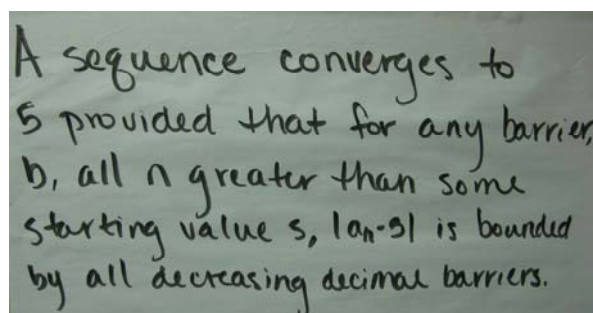 A sequence converges to
5 provided that for any barrier,
b, all n greater than some
starting value s, |aₙ-5| is bounded
by all decreasing decimal barriers.